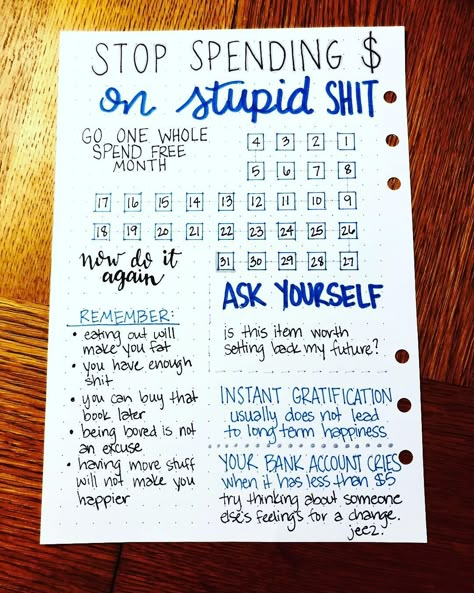 STOP SPENDING $
on stupid SHIT
GO ONE WHOLE
SPEND FREE
MONTH
4 3 2 1
5 6 7 8
17 16 15 14 13 12 11 10 9
18 19 20 21 22 23 24 25 26
31 30 29 28 27
now do it
again
REMEMBER:
• eating out will
make you fat
• you have enough
shit
• you can buy that
book later
• being bored is not
an excuse
• having more stuff
will not make you
happier
ASK YOURSELF
is this item worth
setting back my future?
INSTANT GRATIFICATION
usually does not lead
to long term happiness
YOUR BANK ACCOUNT CRIES
when it has less than $5
try thinking about someone
else's feelings for a change.
jeez.